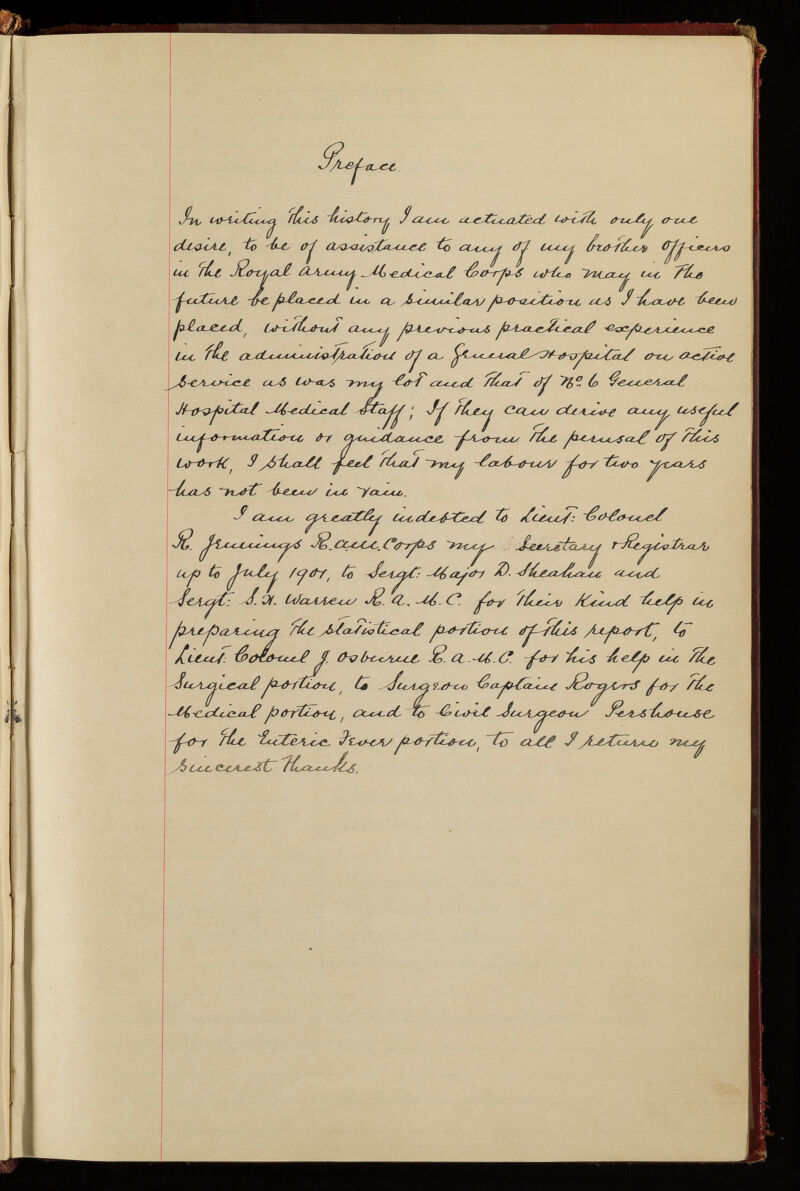 Preface
In writing this history I am actuated with only one
desire, to be of assistance to any of my brother Officers
in the Royal Army Medical Corps who may in the
future be placed in a similar position as I have been
placed, without any previous practical experience
in the administration of a General Hospital on active
service as was my lot and that of No. 6 General
Hospital Medical Staff; If they can derive any useful
information or guidance from the perusal of this
work, I shall feel that my labour for two years
has not been in vain.
I am greatly indebted to Lieut: Colonel
R. Jennings R.am.Corps my Secretary & Registrar
up to July 1901, to Sergt: Major D. Sheahan and
Sergt: S.H. Warren R.A.M.C. for their kind help in
preparing the statistical portion of this report, to
Lieut. Colonel J. Osburne R.A.M.C. for his help in the
Surgical portion, to Surgeon Captain Rogers for the
Medical portion, and to Civil Surgeon Pershouse
for the Enteric Fever portion, to all I return my
sincerest thanks.